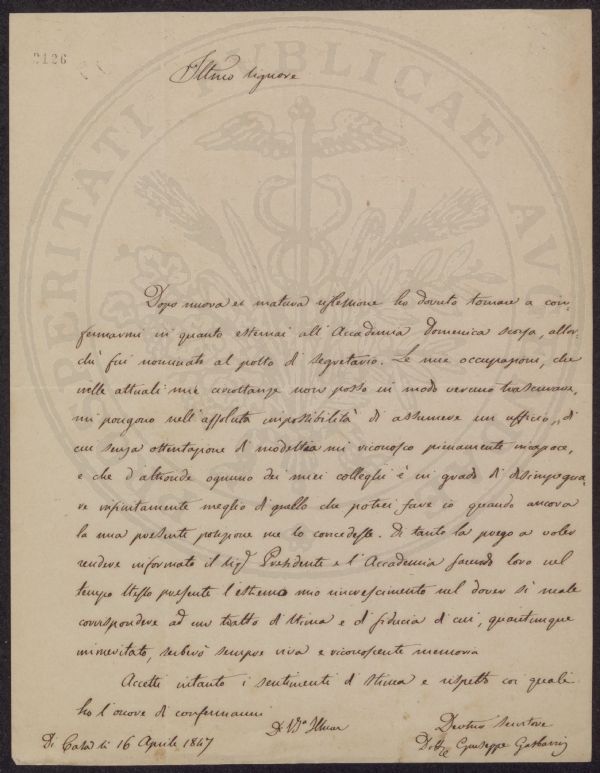 2126
Illmo Signore
Dopo nuova et matura riflessione ho dovuto tornare a con-
fermarmi in quanto esternai all'Accademia Domenica scorsa, allor-
chè fui nominato al posto di Segretario. Le mie occupazioni, che
nelle attuali mie circostanze non posso in modo veruno trascurare,
mi pongono nell'assoluta impossibilità di assumere un ufficio, di
cui senza ostentazione di modestia mi riconosco pienamente incapace,
e che d'altronde ognuno dei miei colleghi è in grado di disimpegna-
re infinitamente meglio di quello che potrei fare io quando ancora
la mia presente posizione me lo concedesse. Di tanto la prego a voler
rendere informato il Sigr Presidente e l'Accademia facendo loro nel
tempo stesso presente l'estremo mio rincrescimento nel dover sì male
corrispondere ad un tratto di stima e di fiducia di cui, quantunque
immeritato, serberò sempre viva e riconoscente memoria
Accetti intanto i sentimenti di stima e rispetto coi quali
ho l'onore di confermarmi
Di Va Illma
Devmo Servitore
Giuseppe
Di Casa li 16 Aprile 1847
PERITATI PUBLICAE